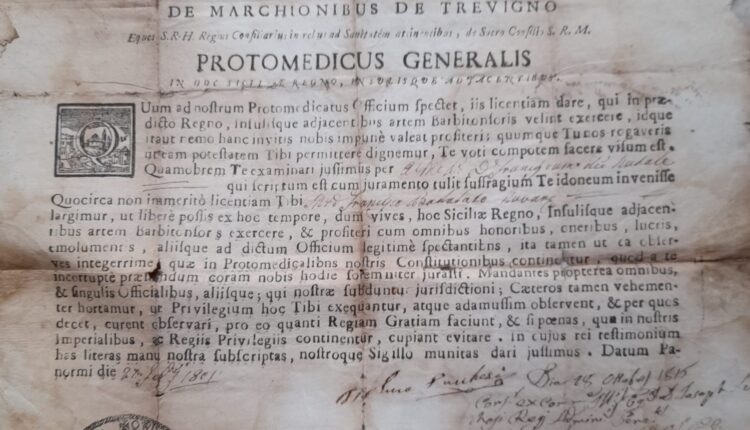 DE MARCHIONIBUS DE TREVIGNO
Eques S.R.H. Regius Consiliarius in rebus ad Sanitatem atinentibus, de Sacro Consilio S. R. M.
PROTOMEDICUS GENERALIS
IN HOC SICILIÆ REGNO, INSULISQUE ADJACENTIBUS.
QUum ad nostrum Protomedicatus Officium spectet, iis licentiam dare, qui in præ-
dicto Regno, Insulisque adjacentibus artem Barbitonsoris velint exercere, idque
itaut nemo hanc invitis nobis impunè valeat profiteri: quumque Tu nos rogaveris
ut eam potestatem Tibi permittere dignemur, Te voti compotem facere visum est.
Quamobrem Te examinari jussimus per
qui scriptum est cum juramento tulit suffragium Te idoneum invenisse
Quocirca non immeritò licentiam Tibi
largimur, ut liberè possis ex hoc tempore, dum vives, hoc Siciliæ Regno, Insulisque adjacen-
tibus artem Barbitonsoris exercere, & profiteri cum omnibus honoribus, oneribus, lucris,
emolumentis, aliisque ad dictum Officium legitimè spectantibns, ita tamen ut ea obser-
ves integerrimè, quæ in Protomedicalibns nostris Constitutionibus continentur, quod a te
interruptè præstandum coram nobis hodie solemniter jurasti. Mandantes propterea omnibus,
& singulis Officialibus, aliisque; qui nostræ subduntur jurisdictioni; Cæteros tamen vehemen-
ter hortamur, ut Privilegium hoc Tibi exequantur, atque adamussim observent, & per quos
decet, curent observari, pro eo quanti Regiam Gratiam faciunt, & si pœnas, quæ in nostris
Imperialibus, æ Regiis Privilegiis continentur, cupiant evitare. In cujus rei testimonium
has literas manu nostra subscriptas, nostroque Sigillo munitas dari jussimus. Datum Pa-
normi die 1801
Die 18 1815